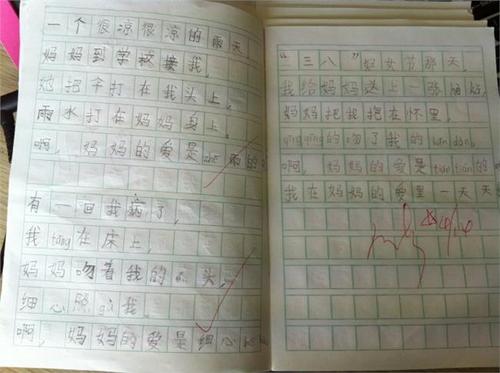 一个很凉很凉的雨天
妈妈到学校接我。
她把伞打在我头上。
雨水打在妈妈身上。
啊，妈妈的爱是 雨的
有一回我病了，
我tǎng在床上，
妈妈吻着我的 头。
细心照gù我。
啊，妈妈的爱是细心
“三八”妇女节那天，
我给妈妈送上一张
妈妈把我抱在怀里。
qīngqīng的吻了我的
啊，妈妈的爱是tián tián的
我在妈妈的爱里一天天